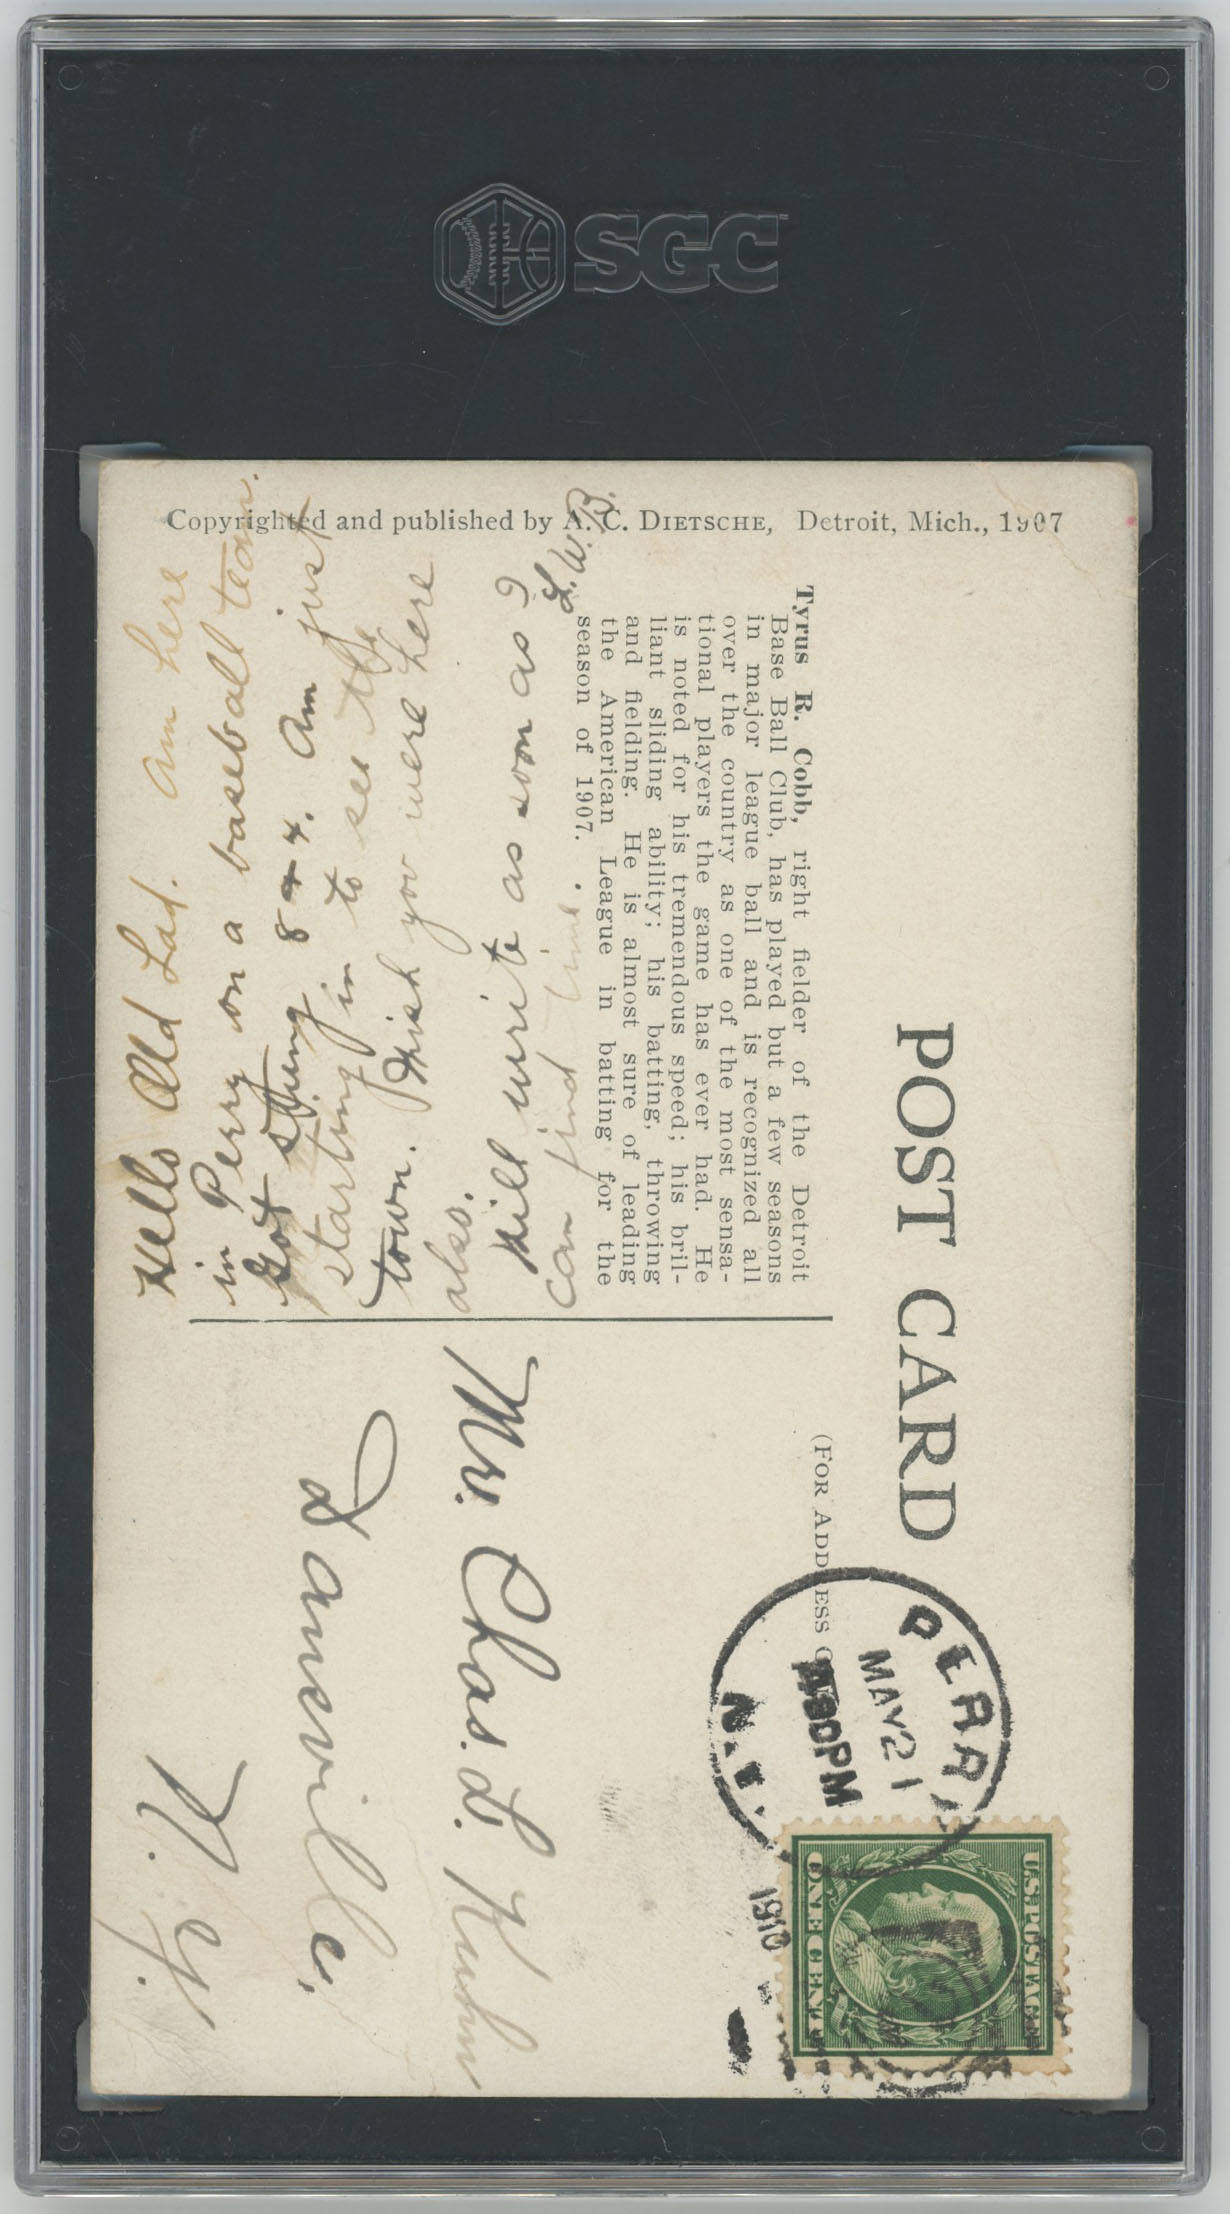 SGC
Copyrighted and published by A. C. DIETSCHE, Detroit, Mich., 1907
POST CARD
(FOR ADDRESS O
Tyrus R. Cobb, right fielder of the Detroit
Base Ball Club, has played but a few seasons
in major league ball and is recognized all
over the country as one of the most sensa-
tional players the game has ever had. He
is noted for his tremendous speed; his bril-
liant sliding ability; his batting, throwing
and fielding. He is almost sure of leading
the American League in batting for the
season of 1907.
Hello Old Lad. Am here
in Perry on a baseball team.
Got string 8 + 4. Am just
starting in to see the
town. Wish you were here
also.
Will write as soon as I
can find time.
L. W. B.
Mr. Chas. L. Kuhn
Dansville,
N. Y.
PERRY
MAY 21
4 30 PM
N.Y.
1910
U.S. POSTAGE
ONE CENT